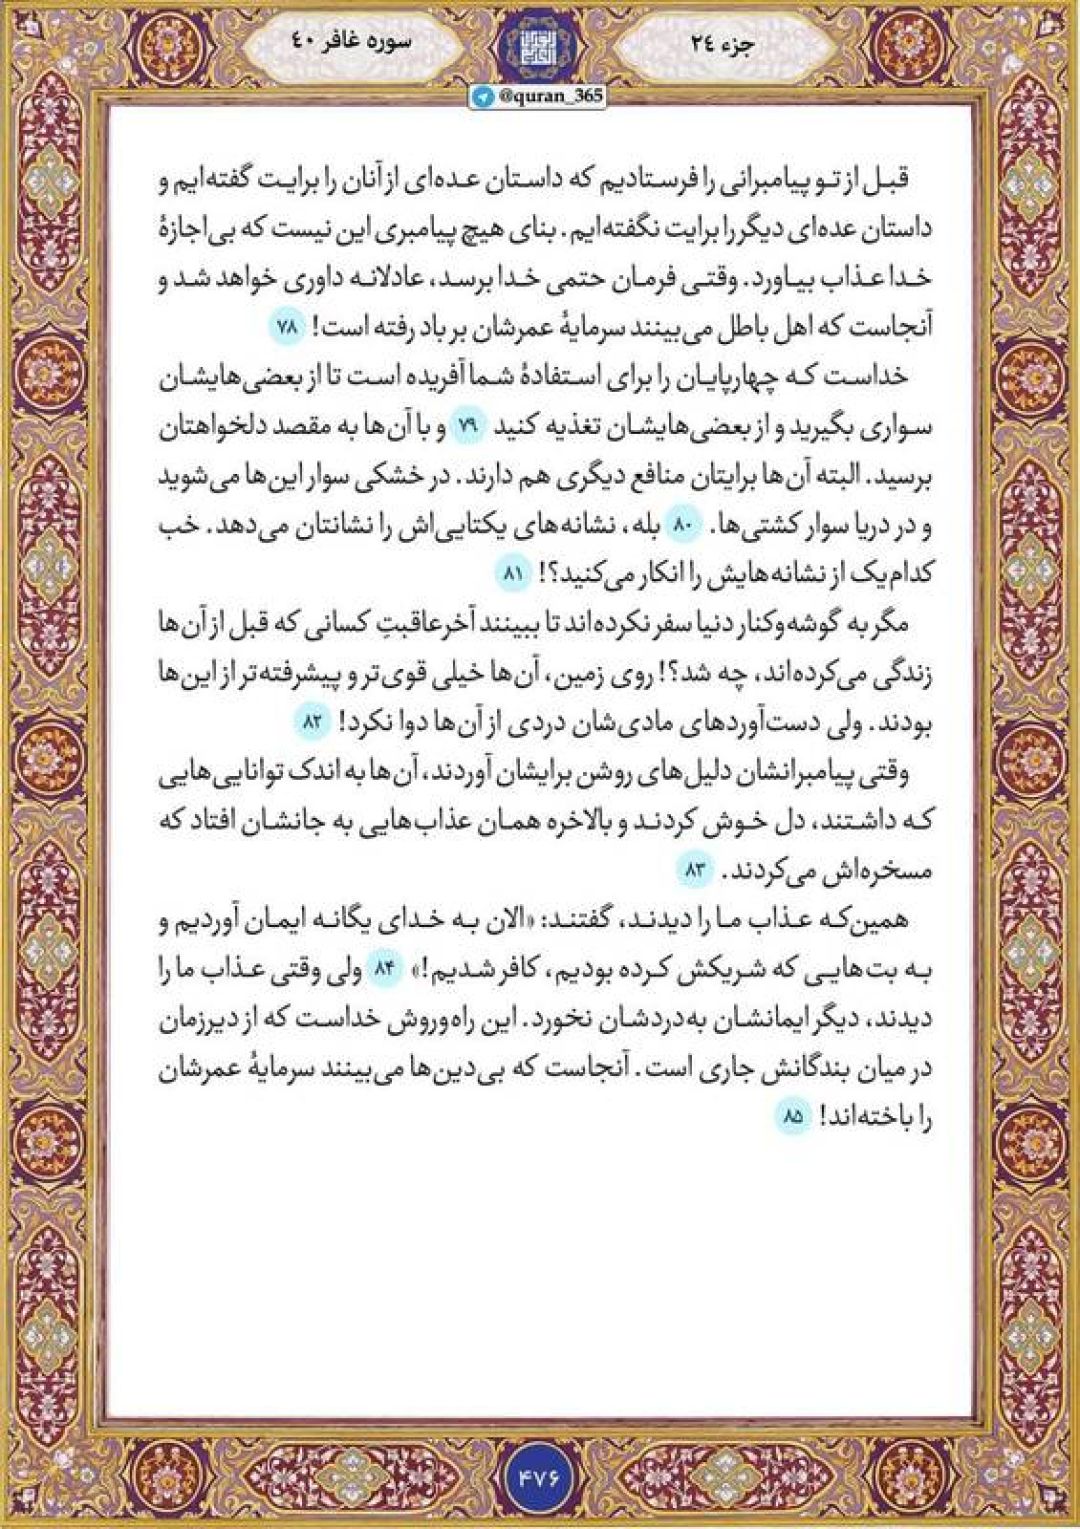 جزء ۲٤
سوره غافر ٤۰
@quran_365
قبل از تو پیامبرانی را فرستادیم که داستان عده‌ای از آنان را برایت گفته‌ایم و
داستان عده‌ای دیگر را برایت نگفته‌ایم. بنای هیچ پیامبری این نیست که بی‌اجازهٔ
خدا عذاب بیاورد. وقتی فرمان حتمی خدا برسد، عادلانه داوری خواهد شد و
آنجاست که اهل باطل می‌بینند سرمایهٔ عمرشان بر باد رفته است! ۷۸
خداست که چهارپایان را برای استفادهٔ شما آفریده است تا از بعضی‌هایشان
سواری بگیرید و از بعضی‌هایشان تغذیه کنید ۷۹ و با آن‌ها به مقصد دلخواهتان
برسید. البته آن‌ها برایتان منافع دیگری هم دارند. در خشکی سوار این‌ها می‌شوید
و در دریا سوار کشتی‌ها. ۸۰ بله، نشانه‌های یکتایی‌اش را نشانتان می‌دهد. خب
کدام‌یک از نشانه‌هایش را انکار می‌کنید؟! ۸۱
مگر به گوشه‌وکنار دنیا سفر نکرده‌اند تا ببینند آخرعاقبتِ کسانی که قبل از آن‌ها
زندگی می‌کرده‌اند، چه شد؟! روی زمین، آن‌ها خیلی قوی‌تر و پیشرفته‌تر از این‌ها
بودند. ولی دست‌آوردهای مادی‌شان دردی از آن‌ها دوا نکرد! ۸۲
وقتی پیامبرانشان دلیل‌های روشن برایشان آوردند، آن‌ها به اندک توانایی‌هایی
که داشتند، دل خوش کردند و بالاخره همان عذاب‌هایی به جانشان افتاد که
مسخره‌اش می‌کردند. ۸۳
همین‌که عذاب ما را دیدند، گفتند: «الان به خدای یگانه ایمان آوردیم و
به بت‌هایی که شریکش کرده بودیم، کافر شدیم!» ۸۴ ولی وقتی عذاب ما را
دیدند، دیگر ایمانشان به‌دردشان نخورد. این راه‌وروش خداست که از دیرزمان
در میان بندگانش جاری است. آنجاست که بی‌دین‌ها می‌بینند سرمایهٔ عمرشان
را باخته‌اند! ۸۵
۴۷۶